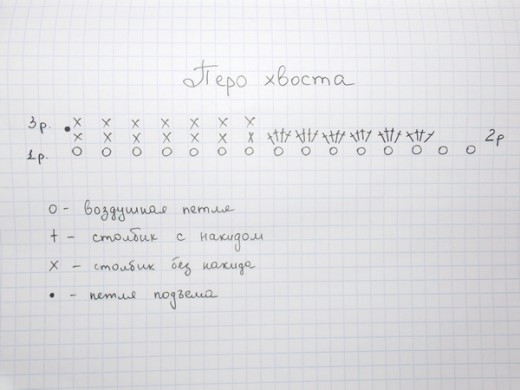 Перо хвоста
3р. • x x x x x x x
x x x x x x x 2р
1р. o o o o o o o o o o o o o o o
o - воздушная петля
† - столбик с накидом
x - столбик без накида
• - петля подъема